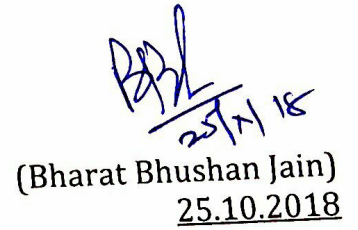 25/X/18
(Bharat Bhushan Jain)
25.10.2018